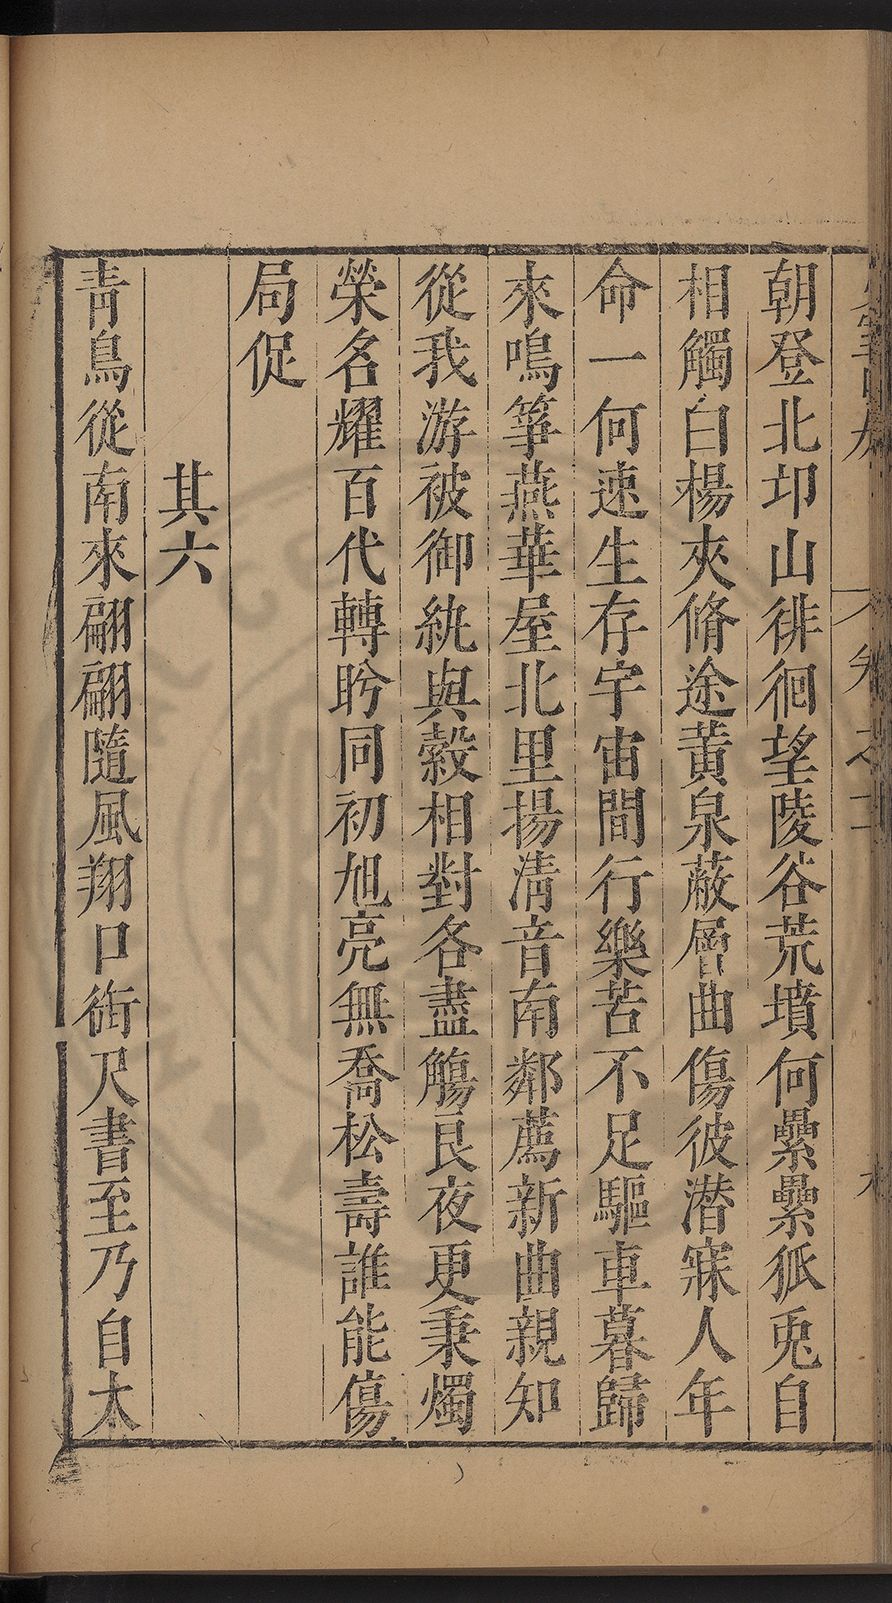 朝登北邙山徘徊望陵谷荒墳何纍纍狐兎自
相觸白楊夾脩途黃泉蔽層曲傷彼潛寐人年
命一何速生存宇宙間行樂苦不足驅車暮歸
來鳴箏燕華屋北里揚淸音南鄰薦新曲親知
從我游被御紈與縠相對各盡觴良夜更秉燭
榮名耀百代轉盻同初旭亮無喬松壽誰能傷
局促
其六
靑鳥從南來翩翩隨風翔口銜尺書至乃自太